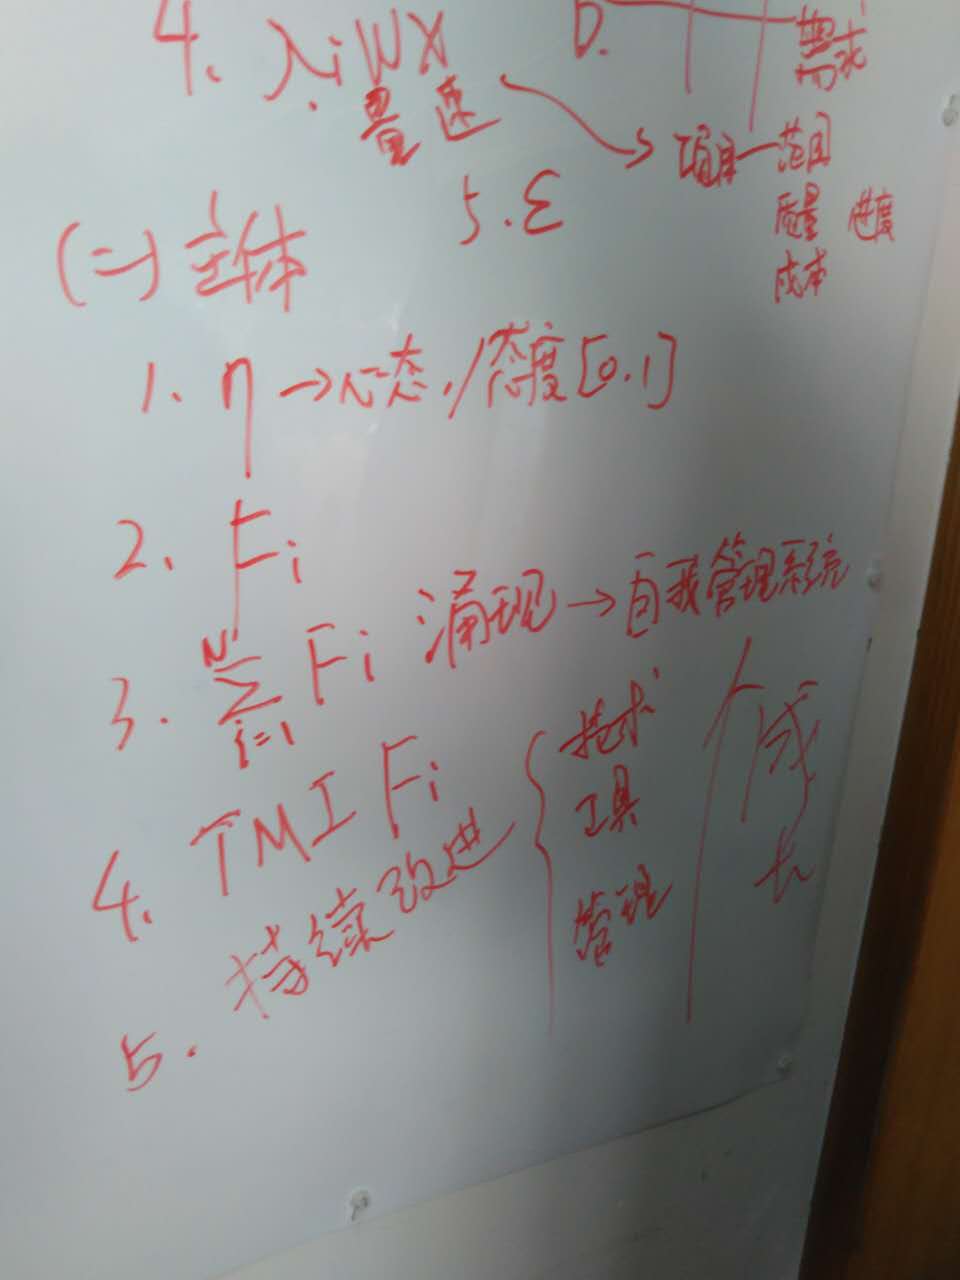 4. λi W X
D.
需求
量 速
项目 — 范围
5. ε
质量 进度
成本
(二) 主体
1. η → 心态 / 态度 [0.1]
2. Fi
3. N Σ i=1 Fi 涌现 → 自我管理系统
4. TMI Fi
持续改进 { 技术
工具
管理
个成长
5.